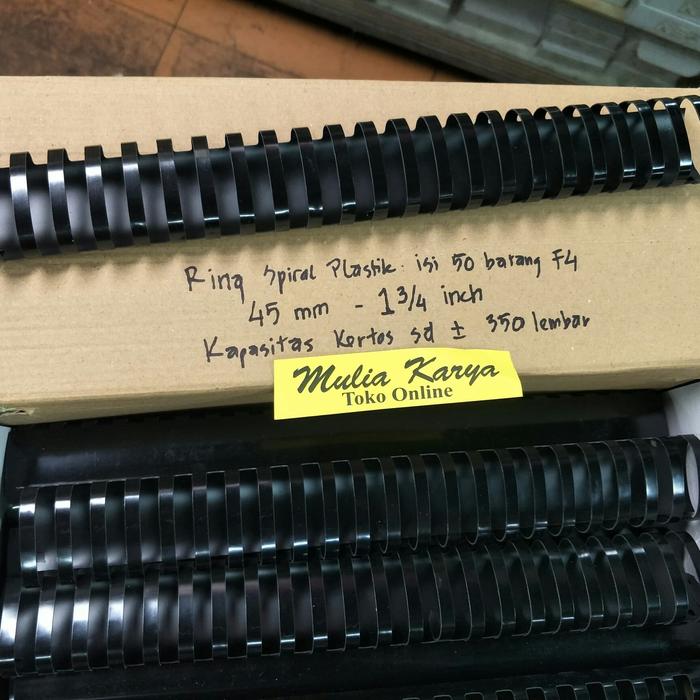 Ring Spiral Plastik isi 50 barang F4
45 mm - 1 3/4 inch
Kapasitas Kertas sd ± 350 lembar
Mulia Karya
Toko Online